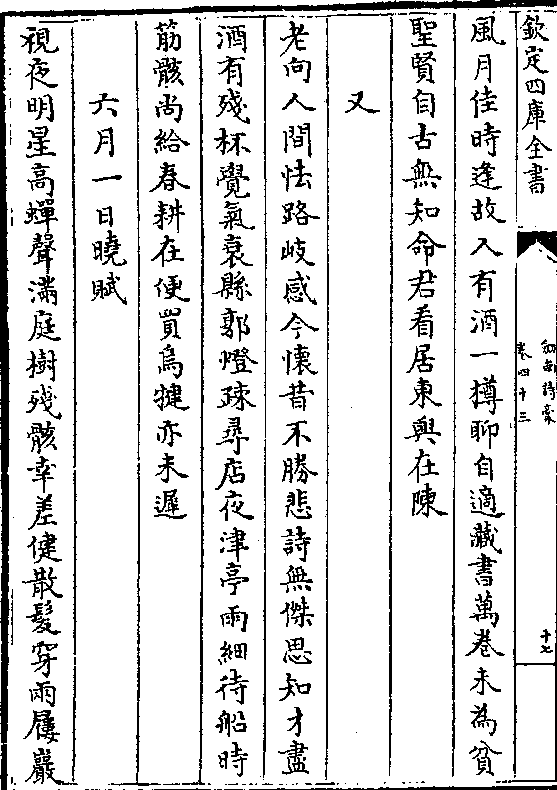 欽定四庫全書
劍南詩藁
卷四十三
十七
風月佳時逢故人有酒一樽聊自適藏書萬卷未為貧
聖賢自古無知命君看居東與在陳
又
老向人間怯路岐感今懷昔不勝悲詩無傑思知才盡
酒有殘杯覺氣衰縣郭燈疎尋店夜津亭雨細待船時
筋骸尚給春耕在便買烏犍亦未遲
六月一日曉賦
視夜明星高蟬聲滿庭樹殘骸幸差健散髮穿雨屨巖